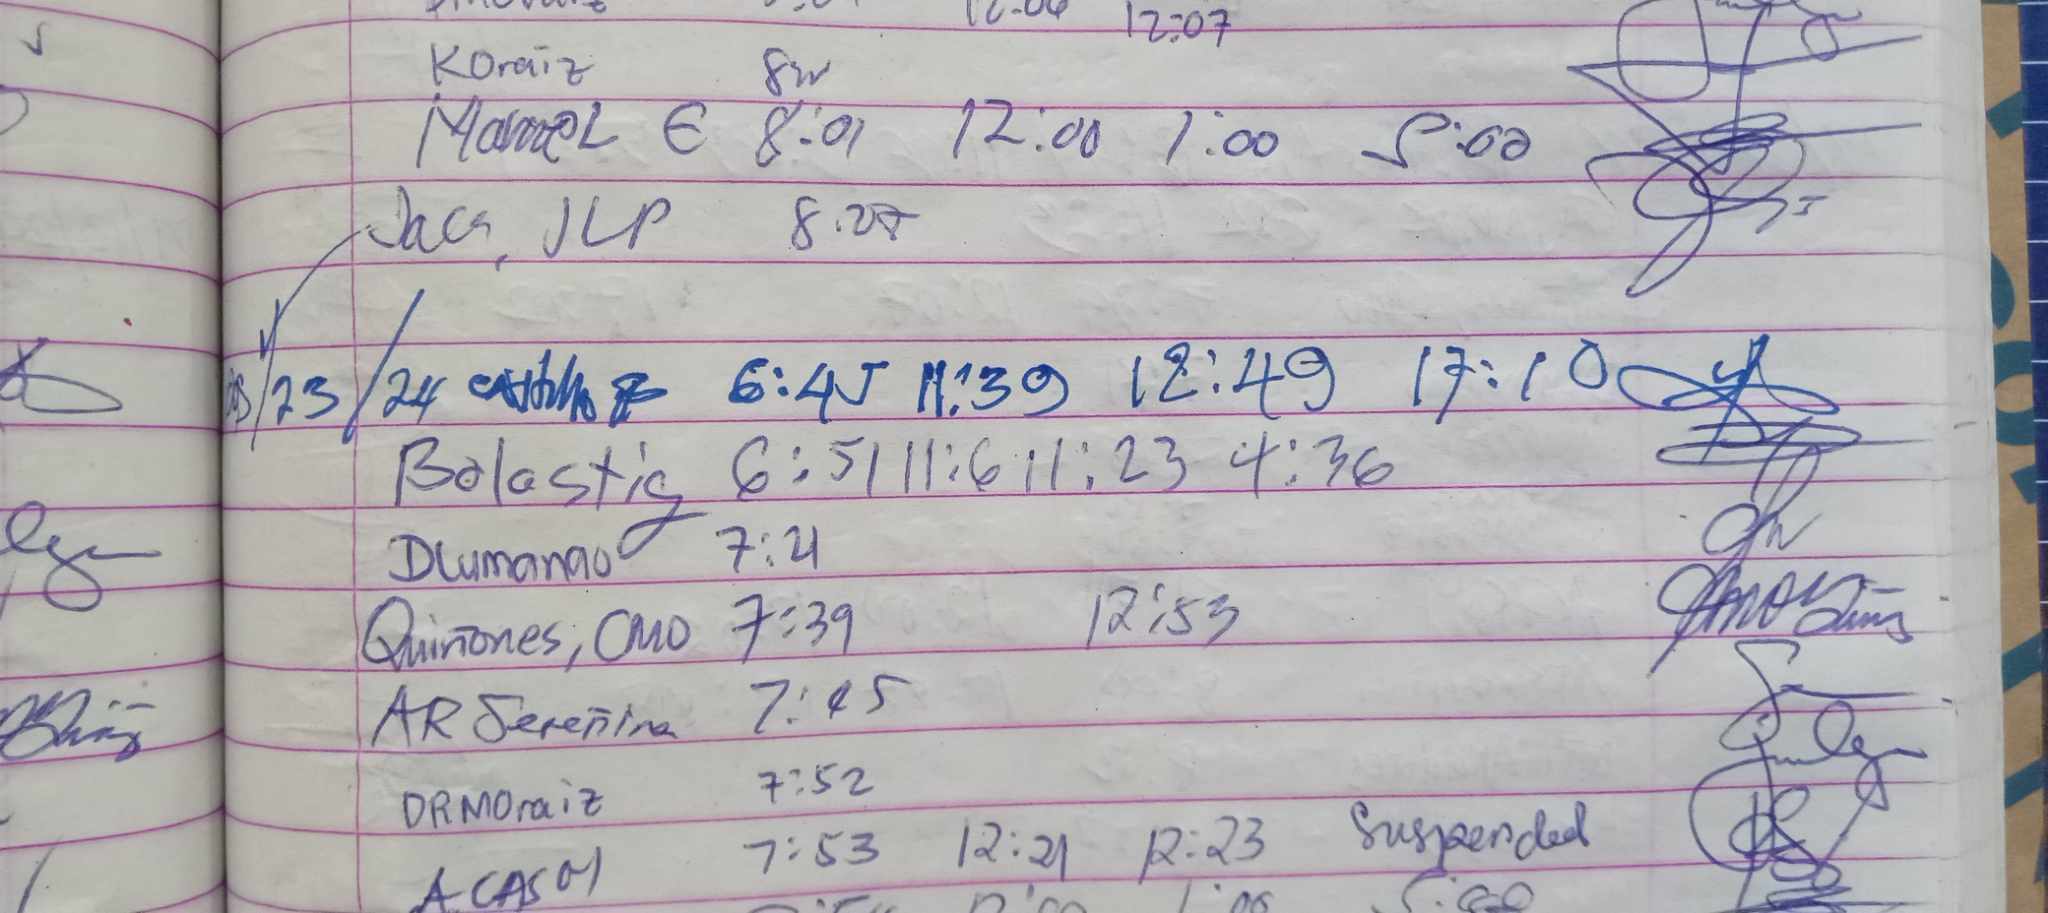 12:07
Koraiz
Manuel E 8:01 12:00 1:00 5:00
Jaca, JLP 8:27
/23/24 6:45 11:39 12:49 17:10
Balastig 6:51 11:6 11:23 4:36
Dlumanao 7:21
Quiñones, CMO 7:39 12:53
AR Sereñina 7:45
DRMOraiz 7:52
ACASOl 7:53 12:21 12:23 Suspended